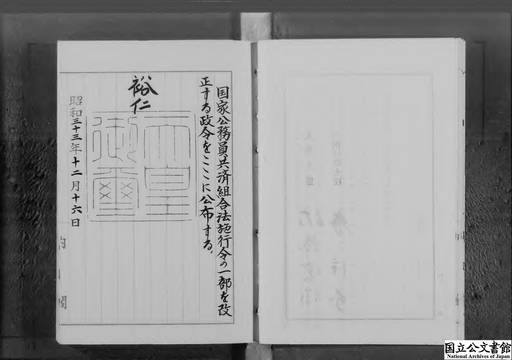 国家公務員共済組合法施行令の一部を改
正する政令をここに公布する。
裕仁
天皇
御璽
昭和三十三年十二月十六日
内閣
国立公文書館
National Archives of Japan